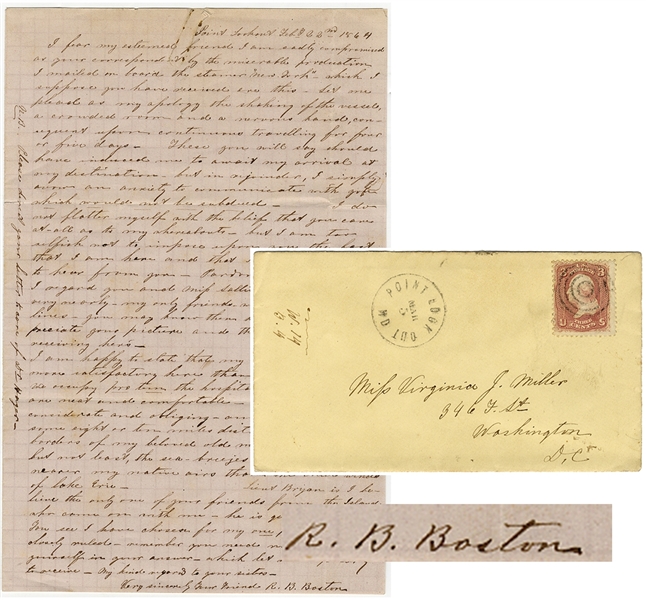 Point Lookout Feb 22nd 1864
I fear my esteemed friend I am sadly compromised
as your correspondent by the miserable production
I mailed on board the steamer "New York" - which I
suppose you have received ere this - Let me
plead as my apology the shaking of the vessel,
a crowded room and a nervous hand, con-
sequent upon continuous travelling for four
or five days - These you will say should
have induced me to await my arrival at
my destination - but in rejoinder, I simply
avow an anxiety to communicate with you
which would not be subdued - I do
not flatter myself with the belief that you care
at all as to my whereabouts - but I am too
selfish not to impose upon you the fact
that I am here and that
to hear from you -
I regard you and Miss Sallie
very nearly - my only friends
lines - you may know then
preciate your picture and the
receiving hers -
I am happy to state that my
more satisfactory here than
we occupy pro tem the hospital
are neat and comfortable -
considerate and obliging - an
some eight or ten miles dist
borders of my beloved old
but not least, the sea-breezes
nearer my native airs than the
of Lake Erie - Lieut Bryan is I be-
lieve the only one of your friends from the Island
who came on with me - he is
You see I have chosen for my one,
closely ruled - remember you need
yourself in your answer - which let
to receive - My kind regard to your sister -
Very sincerely Your friend R. B. Boston
N.B. Please direct your letter to care of
POINT LOOK OUT MD
MAR
3
U.S. POSTAGE
THREE CENTS
Miss Virginia J. Miller
346 F. St
Washington
D,C,
R. B. Boston